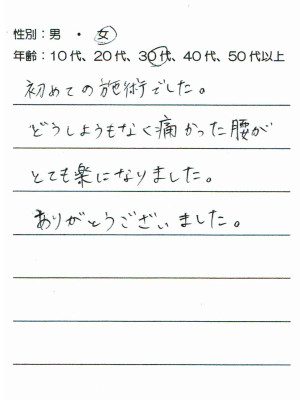 性別：男 ・ 女
年齢：10代、20代、30代、40代、50代以上
初めての施術でした。
どうしようもなく痛かった腰が
とても楽になりました。
ありがとうございました。